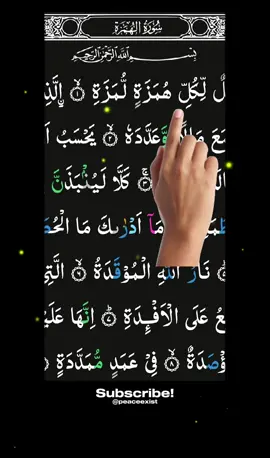 سُوْرَةُ الْهُمَزَةِ
بِسْمِ اللّٰهِ الرَّحْمٰنِ الرَّحِيْمِ
لٌ لِّكُلِّ هُمَزَةٍ لُّمَزَةٍ ۝۱ الَّذِ
عَ مَا وَّعَدَّدَهٗ ۝۲ يَحْسَبُ اَ
كَلَّا لَيُنْۢبَذَنَّ
مَاۤ اَدْرٰىكَ مَا الْحُطَ
نَارُ اللّٰهِ الْمُوْقَدَةُ ۝۶ الَّتِيْ
عُ عَلَى الْاَفْـِٕدَةِ ۝۷ اِنَّهَا عَلَيْ
ؤْصَدَةٌ ۝۸ فِيْ عَمَدٍ مُّمَدَّدَةٍ
Subscribe!
@peaceexist